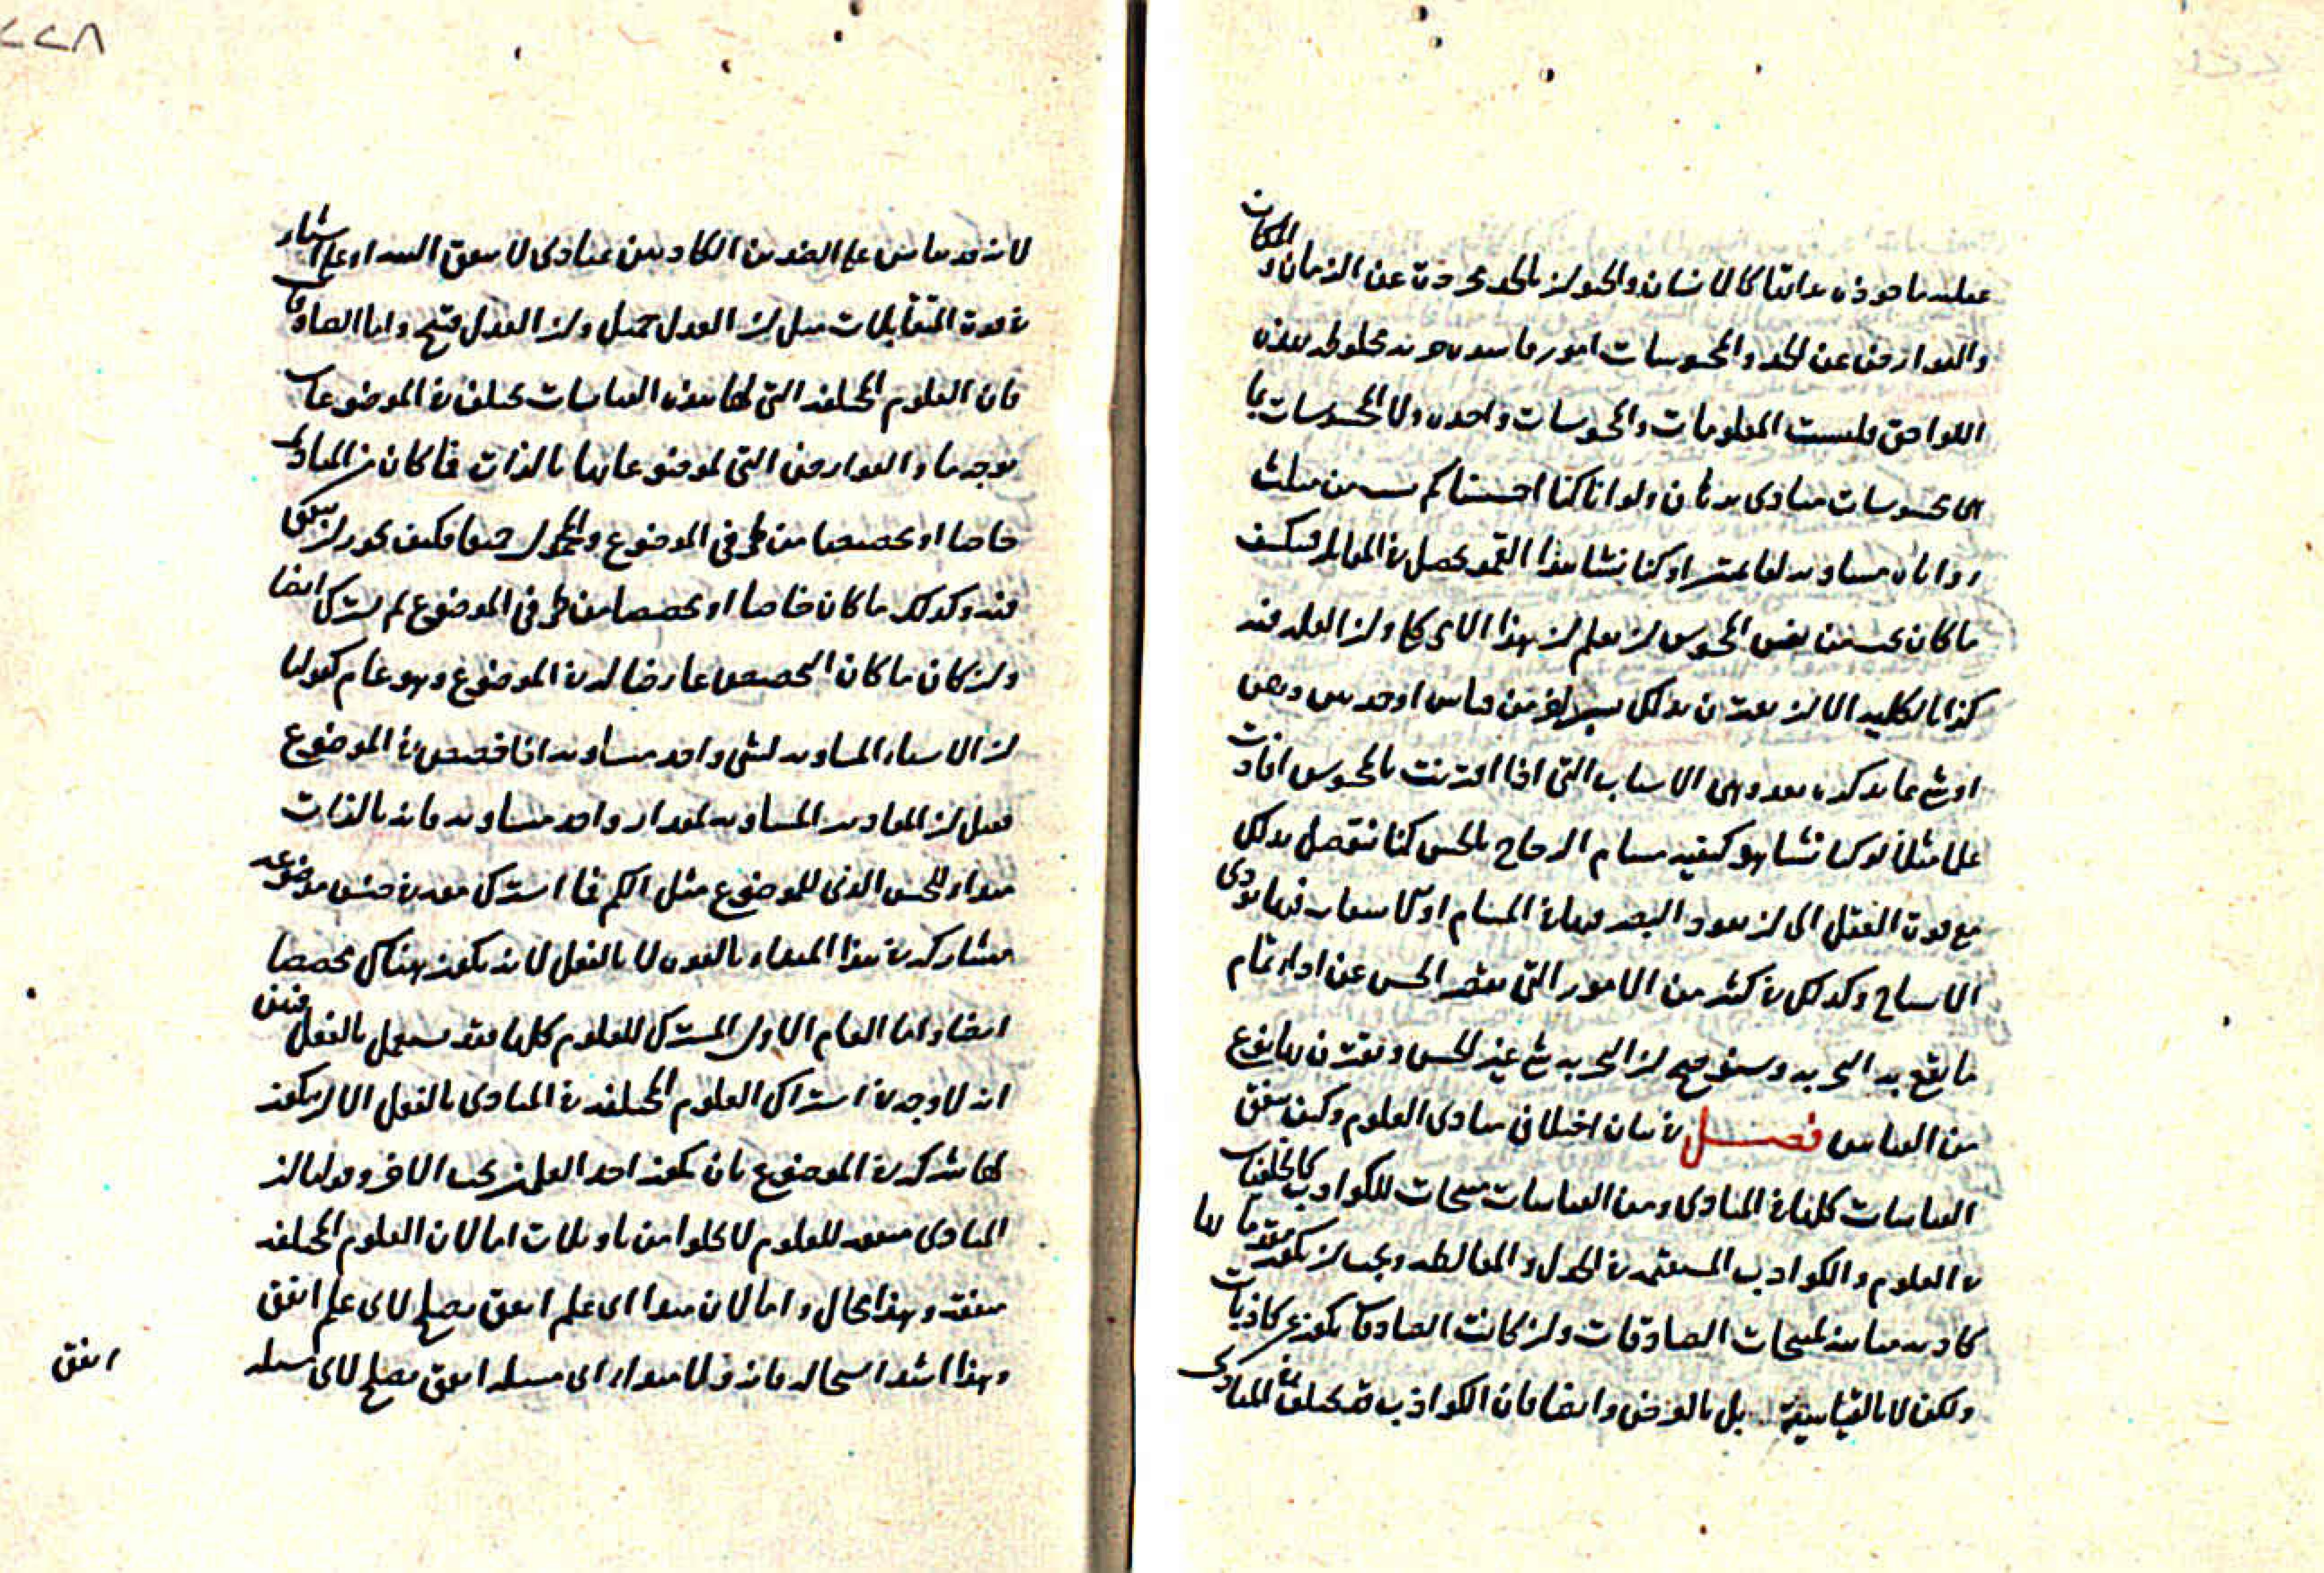 عقلية ماخوذه بذاتها كالانسان والحيوان بالحد مجردة عن الزمان والمكان
والعوارض عن الحد والمحسوسات امور فاسده جزئية مخلوطه بهذه
اللواحق فليست المعلومات والمحسوسات واحده ولا المحسوسات بما
هى محسوسات مبادى برهان ولو اناكنا احسسنا كم من مثلث
زواياه مساويه لقائمتين اوكنا نشاهد القمر يحصل فى المقابلة فينكسف
ماكان يجب من نفس المحسوس ان نعلم ان هذا الامر كلى وان العله فيه
كذا بالكليه الا ان يقترن بذلك من قياس او حدس وبعض
او شى مما نذكره بعد وهى الاسباب التى اذا اقترنت بالمحسوس افادت
علما مثلا لو كنا نشاهد كيفيه مسام الزجاج بالحس كنا نتوصل بذلك
مع قوة العقل الى ان نفوذ البصر فيها فى المسام او لاستقامات فيها تودى
الاشباح وكذلك فى كثير من الامور التى يقصر الحس عن اداء تمام
ما يقع به التجربه وستوضح ان التجربه شى غير الحس ويقترن بها نوع
من القياس فصل فى بيان اختلاف مبادى العلوم وكيف يتفق
القياسات كلها فى المبادى ومن القياسات منتجات للكواذب كالخلفيات
فى العلوم والكواذب المستعمله فى الجدل والمغالطه ويجب ان يكون مقدماتها
كاذبه مباينه لمنتجات الصادقات وان كانت الصادقات يكون عن كاذبات
ولكن لا بالقياسية بل بالعرض وايضا فان الكواذب قد تختلف فى المبادى
٢٢٨
لانه قد يقاس على الضدين الكاذبين بمبادى لا يتفق البته او على اشياء
فى قوة المتقابلات مثل ان العدل جميل وان العدل قبيح واما الصادقات
فان العلوم المختلفه التى لها هذه القياسات تختلف فى الموضوعات
بوجه ما والعوارض التى لموضوعاتها بالذات فما كان من المبادى
خاصا او مخصصا من طرفى الموضوع والمحمول جميعا فكيف يجوز ان يتفق
فيه وكذلك ماكان خاصا او مخصصا من طرفى الموضوع لم يشترك ايضا
وان كان ماكان التخصيص عارضا له فى الموضوع وهو عام كقولنا
ان الاشياء المساويه لشى واحد متساويه اذا خصص فى الموضوع
فقيل ان المقادير المساويه لمقدار واحد متساويه فانه بالذات
مبدا للجنس الذى للموضوع مثل الكم فما اشترك معه فى جنس موضوعه
مشاركه فى هذا المبدا بالقوه لا بالفعل لانه يكون هناك مخصصا
ايضا واما العام الاول المشترك للعلوم كلها فقد يستعمل بالفعل فبين
انه لا وجه فى اشتراك العلوم المختلفه فى المبادى بالفعل الا ان يكون
لها شركه فى الموضوع بان يكون احد العلمين تحت الاخر وقولنا ان
المبادى متفقه للعلوم لا يخلوا من تاويلات اما لان العلوم المختلفه
متفقه وهذا محال واما لان مبدا اى علم اتفق يصلح لاى علم اتفق
وهذا اشد استحاله فانه ولا مبدا اى مسله اتفق يصلح لاى مسله
اتفق